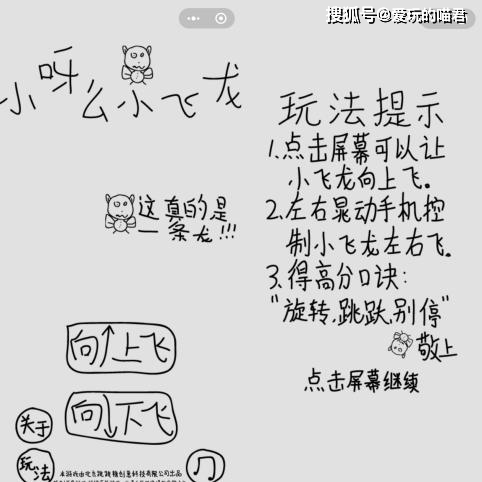 搜狐号@爱玩的喵君
小呀么小飞龙
这真的是
一条龙!!!
向↑上飞
向↓下飞
关于
玩法
玩法提示
1.点击屏幕可以让
小飞龙向上飞。
2.左右晃动手机控
制小飞龙左右飞。
3.得高分口诀:
"旋转,跳跃,别停"
敬上
点击屏幕继续